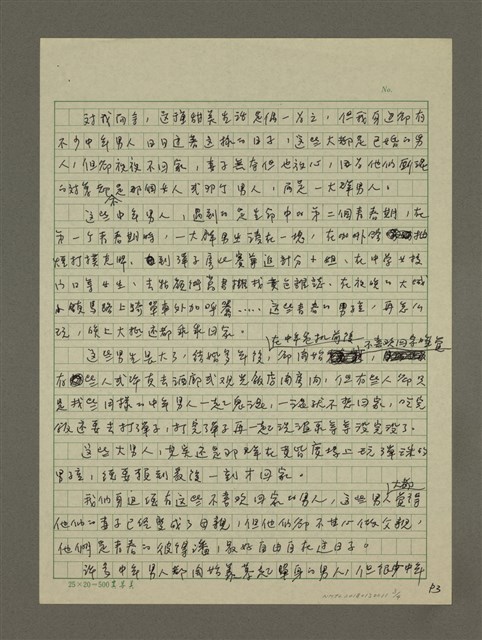 No.
對我而言，這樣甜美生活是偶一為之，但我身邊卻有
不少中年男人日日過著這樣的日子，這些大都是已婚的男
人，但卻夜夜不回家，妻子無奈但也放心，因為他們廝混
的對象卻不是那個女人或那個男人，而是一大群男人。
這些中年男人，遇到的是生命中的第二個青春期，在
第一個青春期時，一大群男生湊在一塊，在
煙打撲克牌、到彈子房比賽 追計分小姐、在中學女校
門口等女生、去 黃色雜誌、在夜晚的大城
小鎮馬路上騎單車外加呼嘯……這些青春的男孩，再怎麼
玩，晚上大抵還都乖乖回家。
在中年危機前後 不喜歡回家睡覺
這些男生長大了，結婚多年後，卻開始，
有些人或許友去酒廊或觀光飯店開房間，但有些人卻只
是找些同樣的中年男人一起鬼混，一混就不想回家，吃完
飯還要去打彈子，打完彈子再一起 等等沒完沒了。
這些大男人，其實還是那群在黃昏廣場上玩彈珠的
男孩，總要賴到最後一刻才回家。
大都
我們身邊總有這些不喜歡回家的男人，這些男人覺得
他們的妻子已經變成了母親，但他們卻不甘心做父親，
他們是青春的彼得潘，最好自由自在過日子。
許多中年男人都開始羨慕起單身的男人，但很少中年
25×20=500
P3